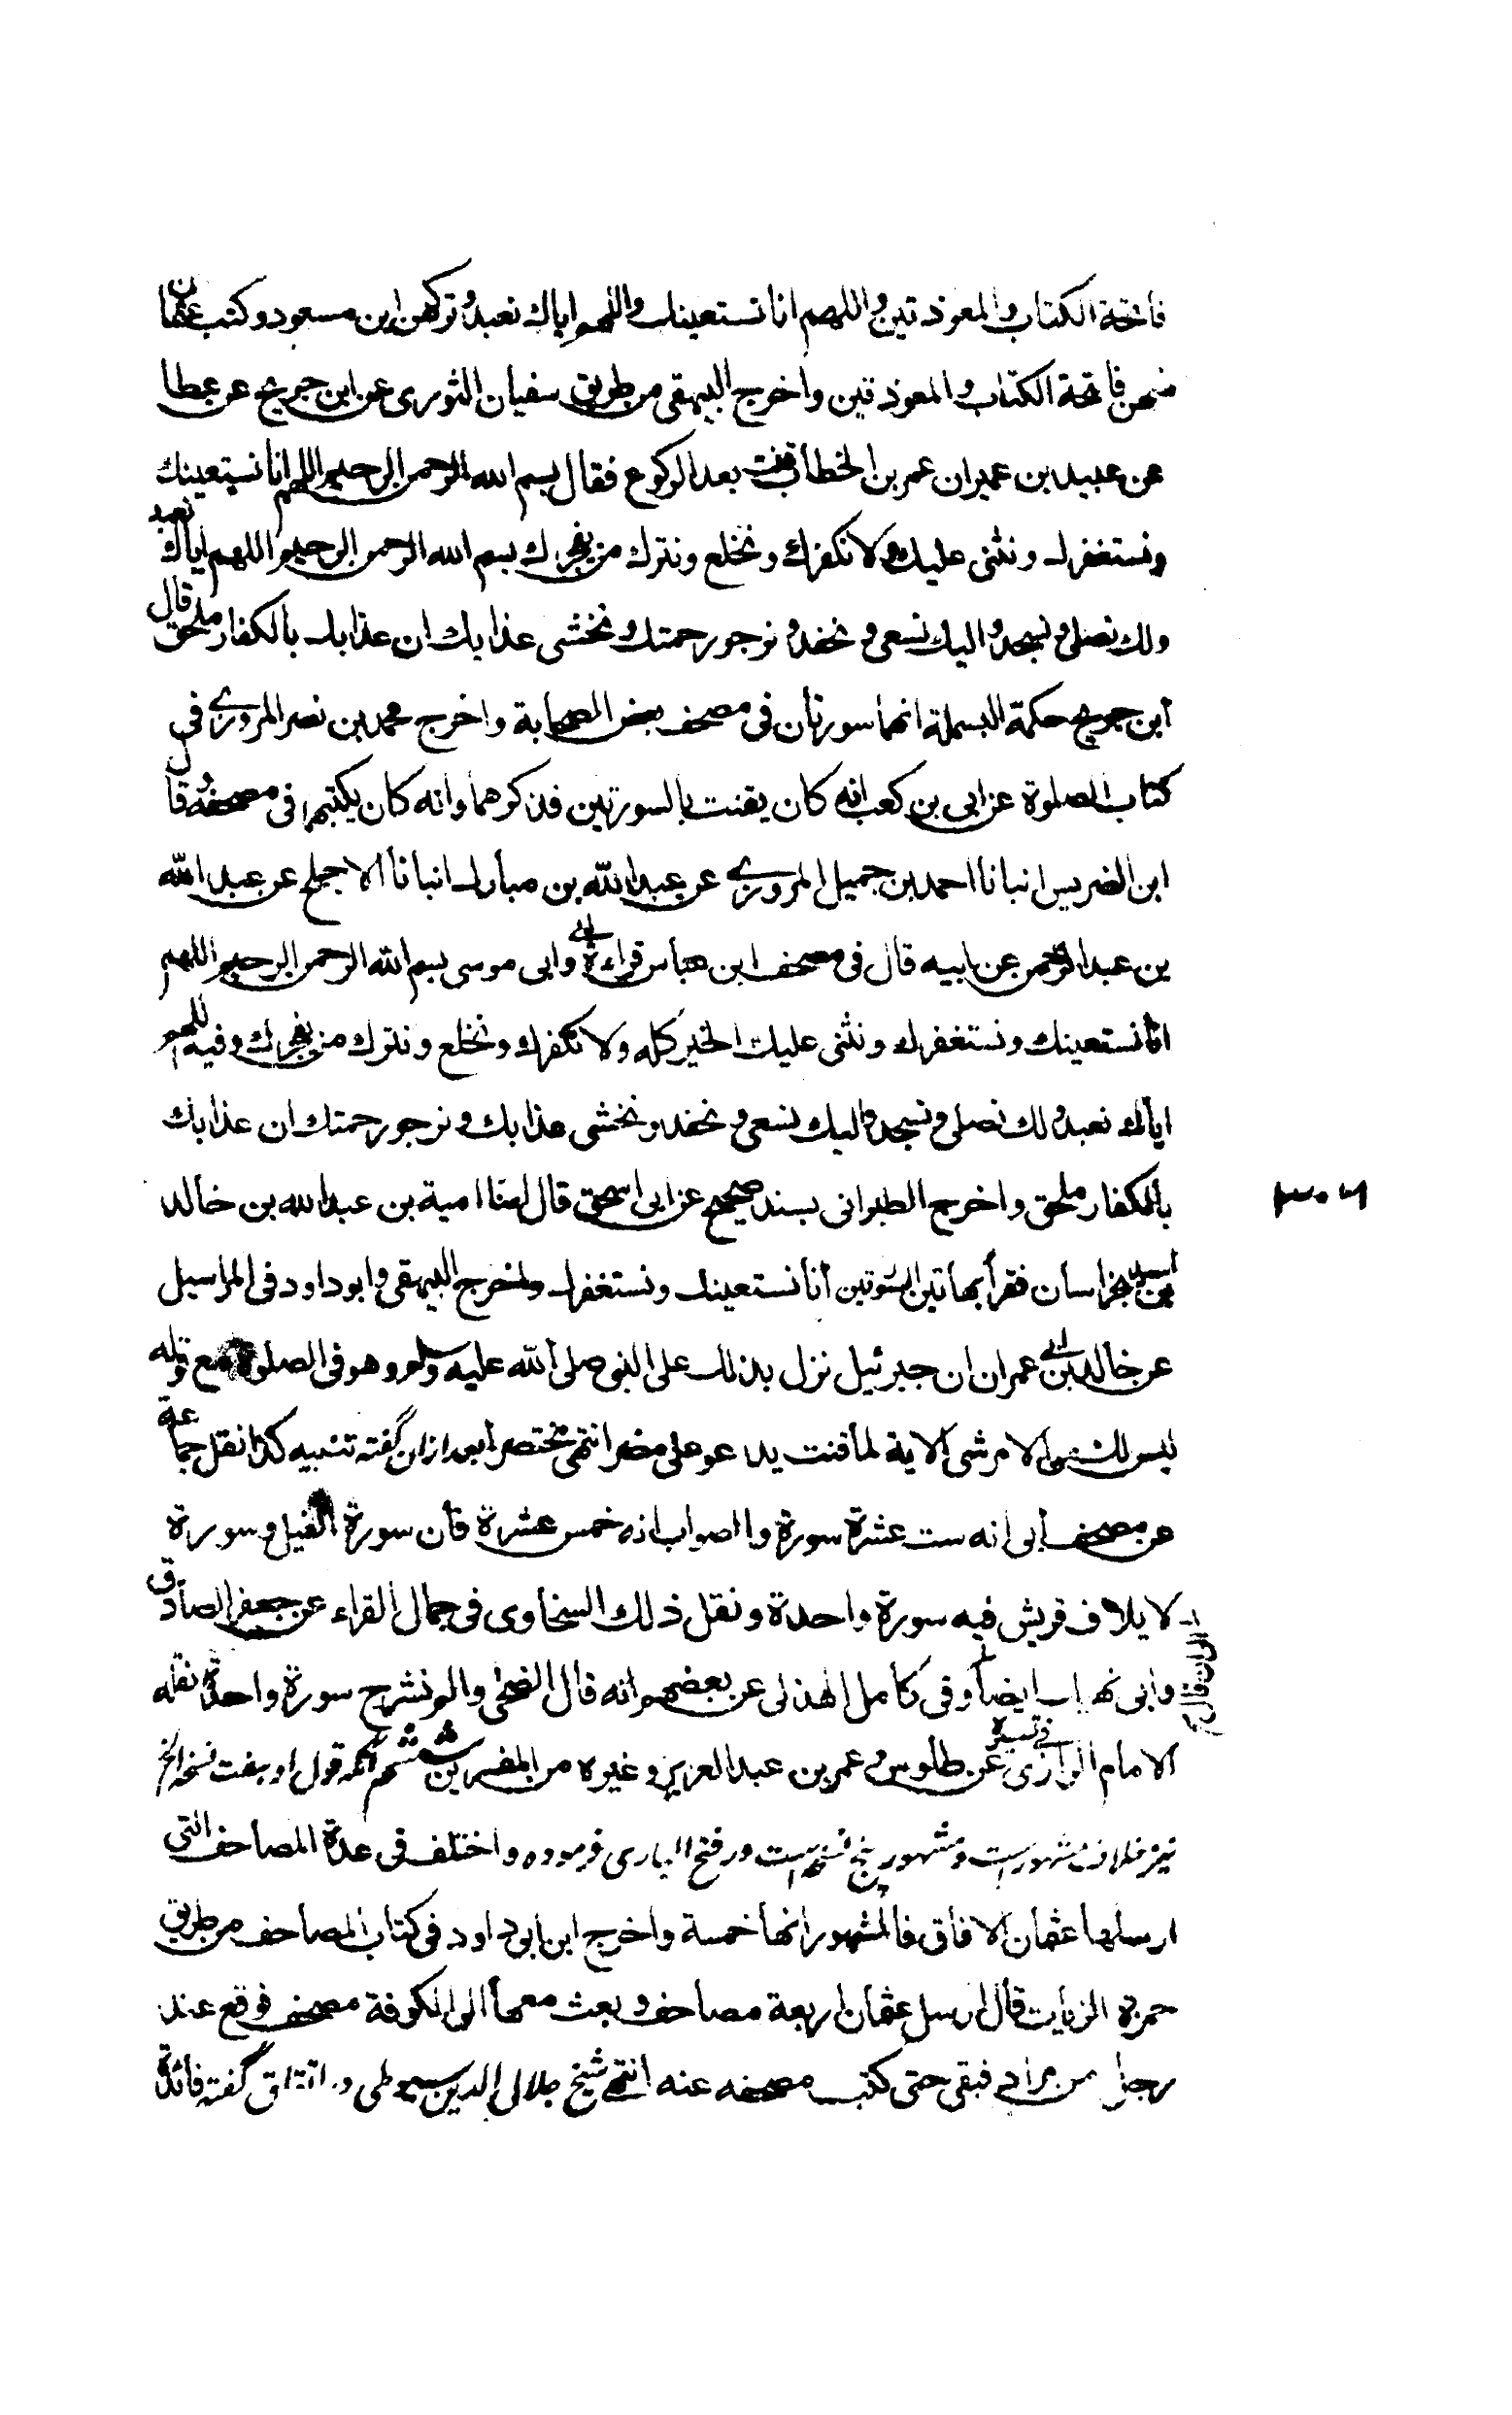 فاتحة الكتاب والمعوذتين واللهم انا نستعينك واللهم اياك نعبد وتركهن ابن مسعود وكتب عثمان
منهن فاتحة الكتاب والمعوذتين واخرج البيهقى من طريق سفيان الثورى عن ابن جريج عن عطا
عن عبيد بن عمير ان عمر بن الخطاب قنت بعد الركوع فقال بسم الله الرحمن الرحيم اللهم انا نستعينك
ونستغفرك ونثنى عليك ولا نكفرك ونخلع ونترك من يفجرك بسم الله الرحمن الرحيم اللهم اياك نعبد
ولك نصلى ونسجد واليك نسعى ونحفد ونرجو رحمتك ونخشى عذابك ان عذابك بالكفار ملحق قال
ابن جريج حكمة البسملة انهما سورتان فى مصحف بعض الصحابة واخرج محمد بن نصر المروزى فى
كتاب الصلوة عن ابى بن كعب انه كان يقنت بالسورتين فذكرهما وانه كان يكتبهما فى مصحفه وقال
ابن الضريس انبانا احمد بن جميل المروزى عن عبد الله بن مبارك انبانا الاجلح عن عبد الله
بن عبد الرحمن عن ابيه قال فى مصحف ابن عباس قراءة ابى وابى موسى بسم الله الرحمن الرحيم اللهم
انا نستعينك ونستغفرك ونثنى عليك الخير كله ولا نكفرك ونخلع ونترك من يفجرك وفيه اللهم
اياك نعبد ولك نصلى ونسجد واليك نسعى ونحفد ونخشى عذابك ونرجو رحمتك ان عذابك
بالكفار ملحق واخرج الطبرانى بسند صحيح عن ابى اسحق قال امنا امية بن عبد الله بن خالد
٣٠٦
بن اسيد بخراسان فقرأ بهاتين السورتين انا نستعينك ونستغفرك واخرج البيهقى وابو داود فى المراسيل
عن خالد بن ابى عمران ان جبرئيل نزل بذلك على النبى صلى الله عليه وسلم وهو فى الصلوة مع قوله
ليس لك من الامر شى الاية لما قنت يدعو على مضر انتهى مختصرا بعد ازان گفته تنبيه كذا نقل جماعة
عن مصحف ابى انه ست عشرة سورة والصواب انه خمس عشرة فان سورة الفيل وسورة
لايلاف قريش فيه سورة واحدة ونقل ذلك السخاوى فى جمال القراء عن جعفر الصادق
وابى نهيك ايضا وفى كامل الهذلى عن بعضهم انه قال الضحى والم نشرح سورة واحدة نقله
الامام الرازى فى تفسيره عن طاوس وعمر بن عبد العزيز وغيره من المفسرين ششم آنكه قول او بهفت نسخه الخ
نيز خلاف مشهور است ومشهور پنج نسخه است در فتح البارى فرموده واختلف فى عدة المصاحف التى
ارسلها عثمان الافاق فالمشهور انها خمسة واخرج ابن ابى داود فى كتاب المصاحف من طريق
حمزة الزيات قال ارسل عثمان اربعة مصاحف وبعث معها الى الكوفة مصحف فوقع عند
رجل من مراد فبقى حتى كتب مصحفه عنه انتهى شيخ جلال الدين سيوطى در اتقان گفته فائدة